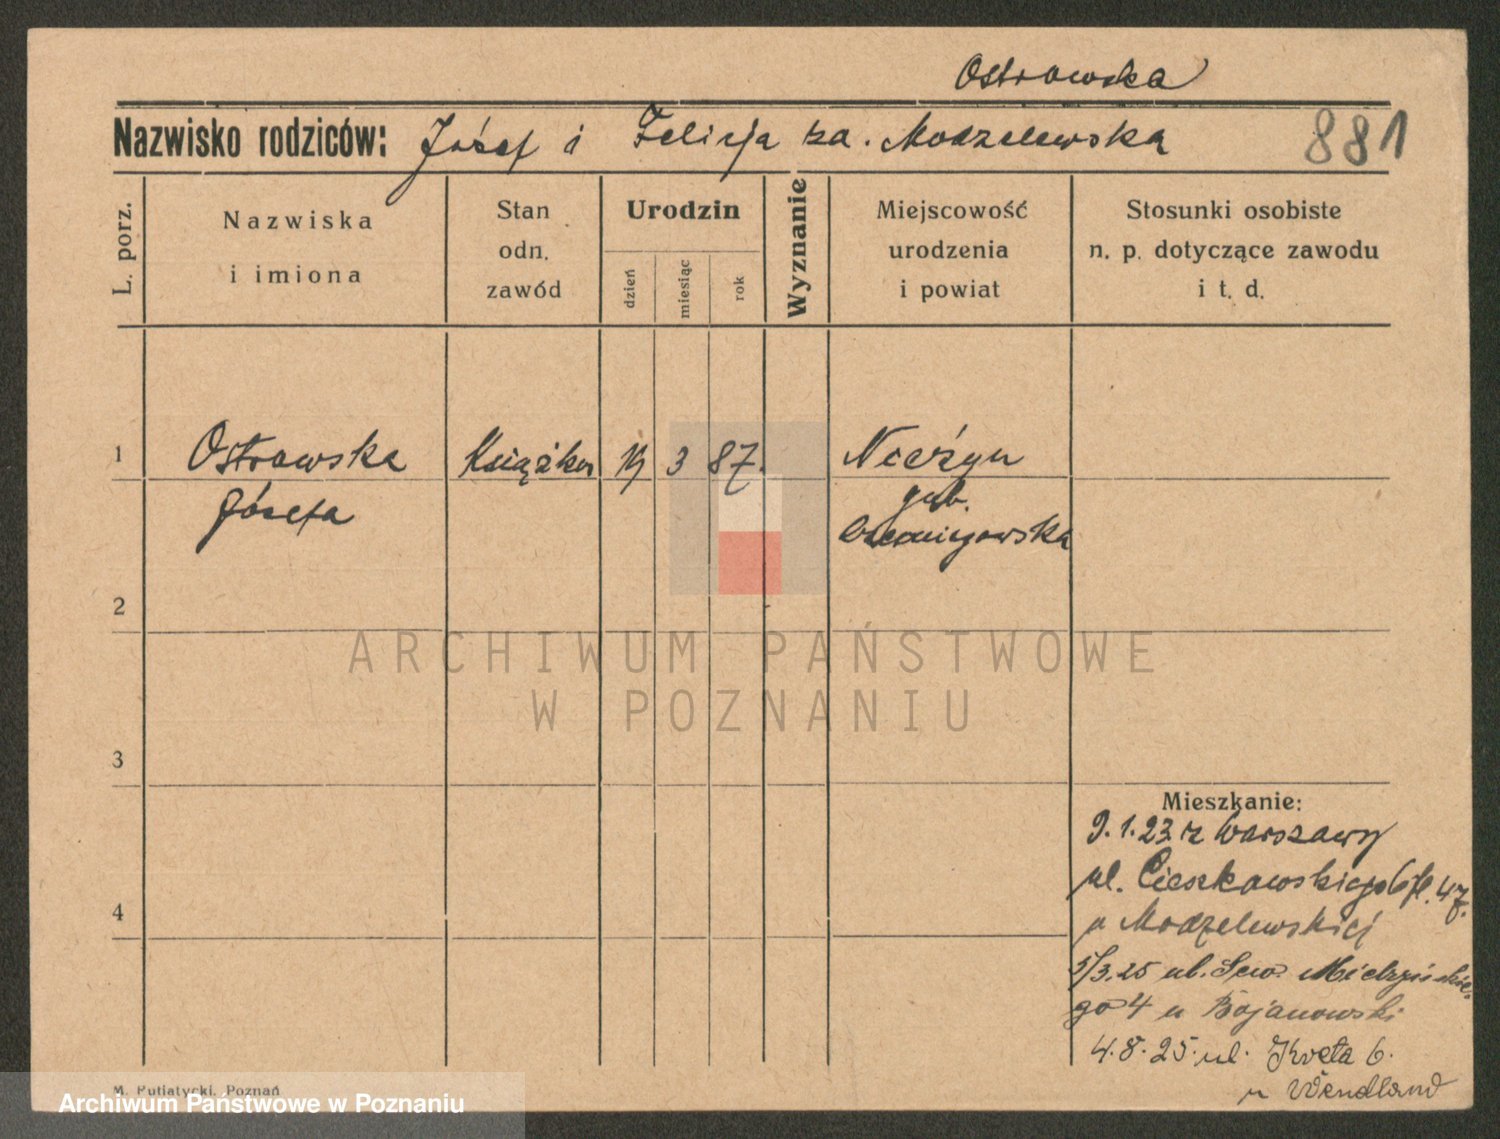 Ostrowska
Nazwisko rodziców: Józef i Felicja za. Modzelewska 881
L. porz.
Nazwiska
i imiona
Stan
odn.
zawód
Urodzin
dzień
miesiąc
rok
Wyznanie
Miejscowość
urodzenia
i powiat
Stosunki osobiste
n. p. dotyczące zawodu
i t. d.
1 Ostrowska 19 3 87. Nieżyn
Józefa gub.
2
ARCHIWUM PAŃSTWOWE
W POZNANIU
3
4
Mieszkanie:
9.1.23. z Warszawy
ul. Cieszkowskiego 6
u Modzelewskiej
5/3.25 ul. Sew. Mielżyńskie-
go 4 u Bojanowski
4.8.25. ul. 6.
u Wendland
M. Putiatycki, Poznań
Archiwum Państwowe w Poznaniu